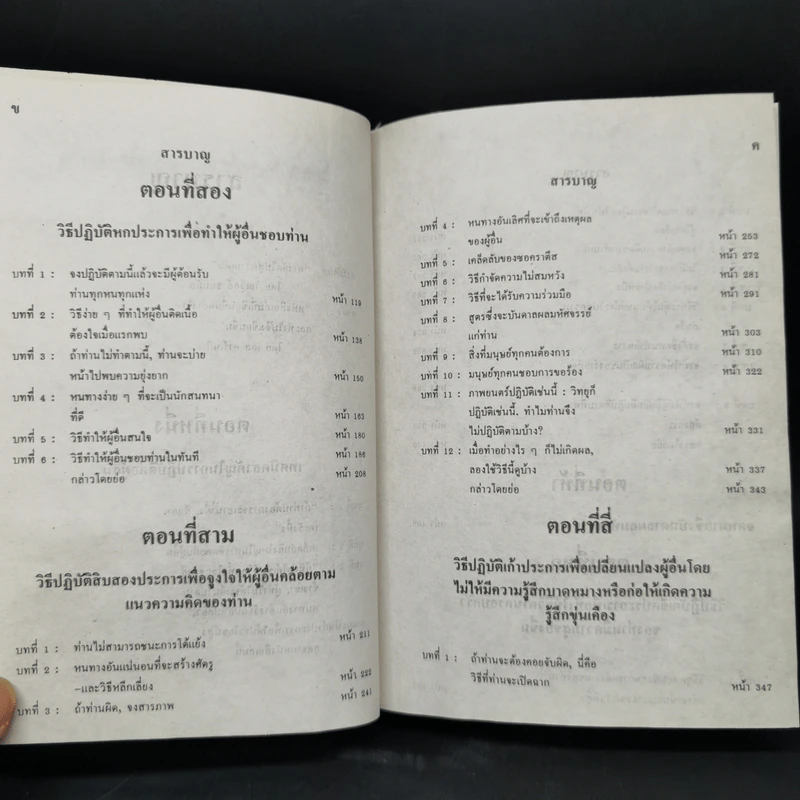 ข
สารบาญ
ตอนที่สอง
วิธีปฏิบัติหกประการเพื่อทำให้ผู้อื่นชอบท่าน
บทที่ 1 : จงปฏิบัติตามนี้แล้วจะมีผู้ต้อนรับ
ท่านทุกหนทุกแห่ง หน้า 119
บทที่ 2 : วิธีง่าย ๆ ที่ทำให้ผู้อื่นติดเนื้อ
ต้องใจเมื่อแรกพบ หน้า 138
บทที่ 3 : ถ้าท่านไม่ทำตามนี้, ท่านจะบ่าย
หน้าไปพบความยุ่งยาก หน้า 150
บทที่ 4 : หนทางง่าย ๆ ที่จะเป็นนักสนทนา
ที่ดี หน้า 163
บทที่ 5 : วิธีทำให้ผู้อื่นสนใจ หน้า 180
บทที่ 6 : วิธีทำให้ผู้อื่นชอบท่านในทันที หน้า 186
กล่าวโดยย่อ หน้า 208
ตอนที่สาม
วิธีปฏิบัติสิบสองประการเพื่อจูงใจให้ผู้อื่นคล้อยตาม
แนวความคิดของท่าน
บทที่ 1 : ท่านไม่สามารถชนะการโต้แย้ง หน้า 211
บทที่ 2 : หนทางอันแน่นอนที่จะสร้างศัตรู
-และวิธีหลีกเลี่ยง หน้า 222
บทที่ 3 : ถ้าท่านผิด, จงสารภาพ หน้า 241
ค
สารบาญ
บทที่ 4 : หนทางอันเลิศที่จะเข้าถึงเหตุผล
ของผู้อื่น หน้า 253
บทที่ 5 : เคล็ดลับของซอคราตีส หน้า 272
บทที่ 6 : วิธีกำจัดความไม่สมหวัง หน้า 281
บทที่ 7 : วิธีที่จะได้รับความร่วมมือ หน้า 291
บทที่ 8 : สูตรซึ่งจะบันดาลผลมหัศจรรย์
แก่ท่าน หน้า 303
บทที่ 9 : สิ่งที่มนุษย์ทุกคนต้องการ หน้า 310
บทที่ 10 : มนุษย์ทุกคนชอบการขอร้อง หน้า 322
บทที่ 11 : ภาพยนตร์ปฏิบัติเช่นนี้ : วิทยุก็
ปฏิบัติเช่นนี้. ทำไมท่านจึง
ไม่ปฏิบัติตามบ้าง? หน้า 331
บทที่ 12 : เมื่อทำอย่างไร ๆ ก็ไม่เกิดผล,
ลองใช้วิธีนี้ดูบ้าง หน้า 337
กล่าวโดยย่อ หน้า 343
ตอนที่สี่
วิธีปฏิบัติเก้าประการเพื่อเปลี่ยนแปลงผู้อื่นโดย
ไม่ให้มีความรู้สึกบาดหมางหรือก่อให้เกิดความ
รู้สึกขุ่นเคือง
บทที่ 1 : ถ้าท่านจะต้องคอยจับผิด, นี่คือ
วิธีที่ท่านจะเปิดฉาก หน้า 347